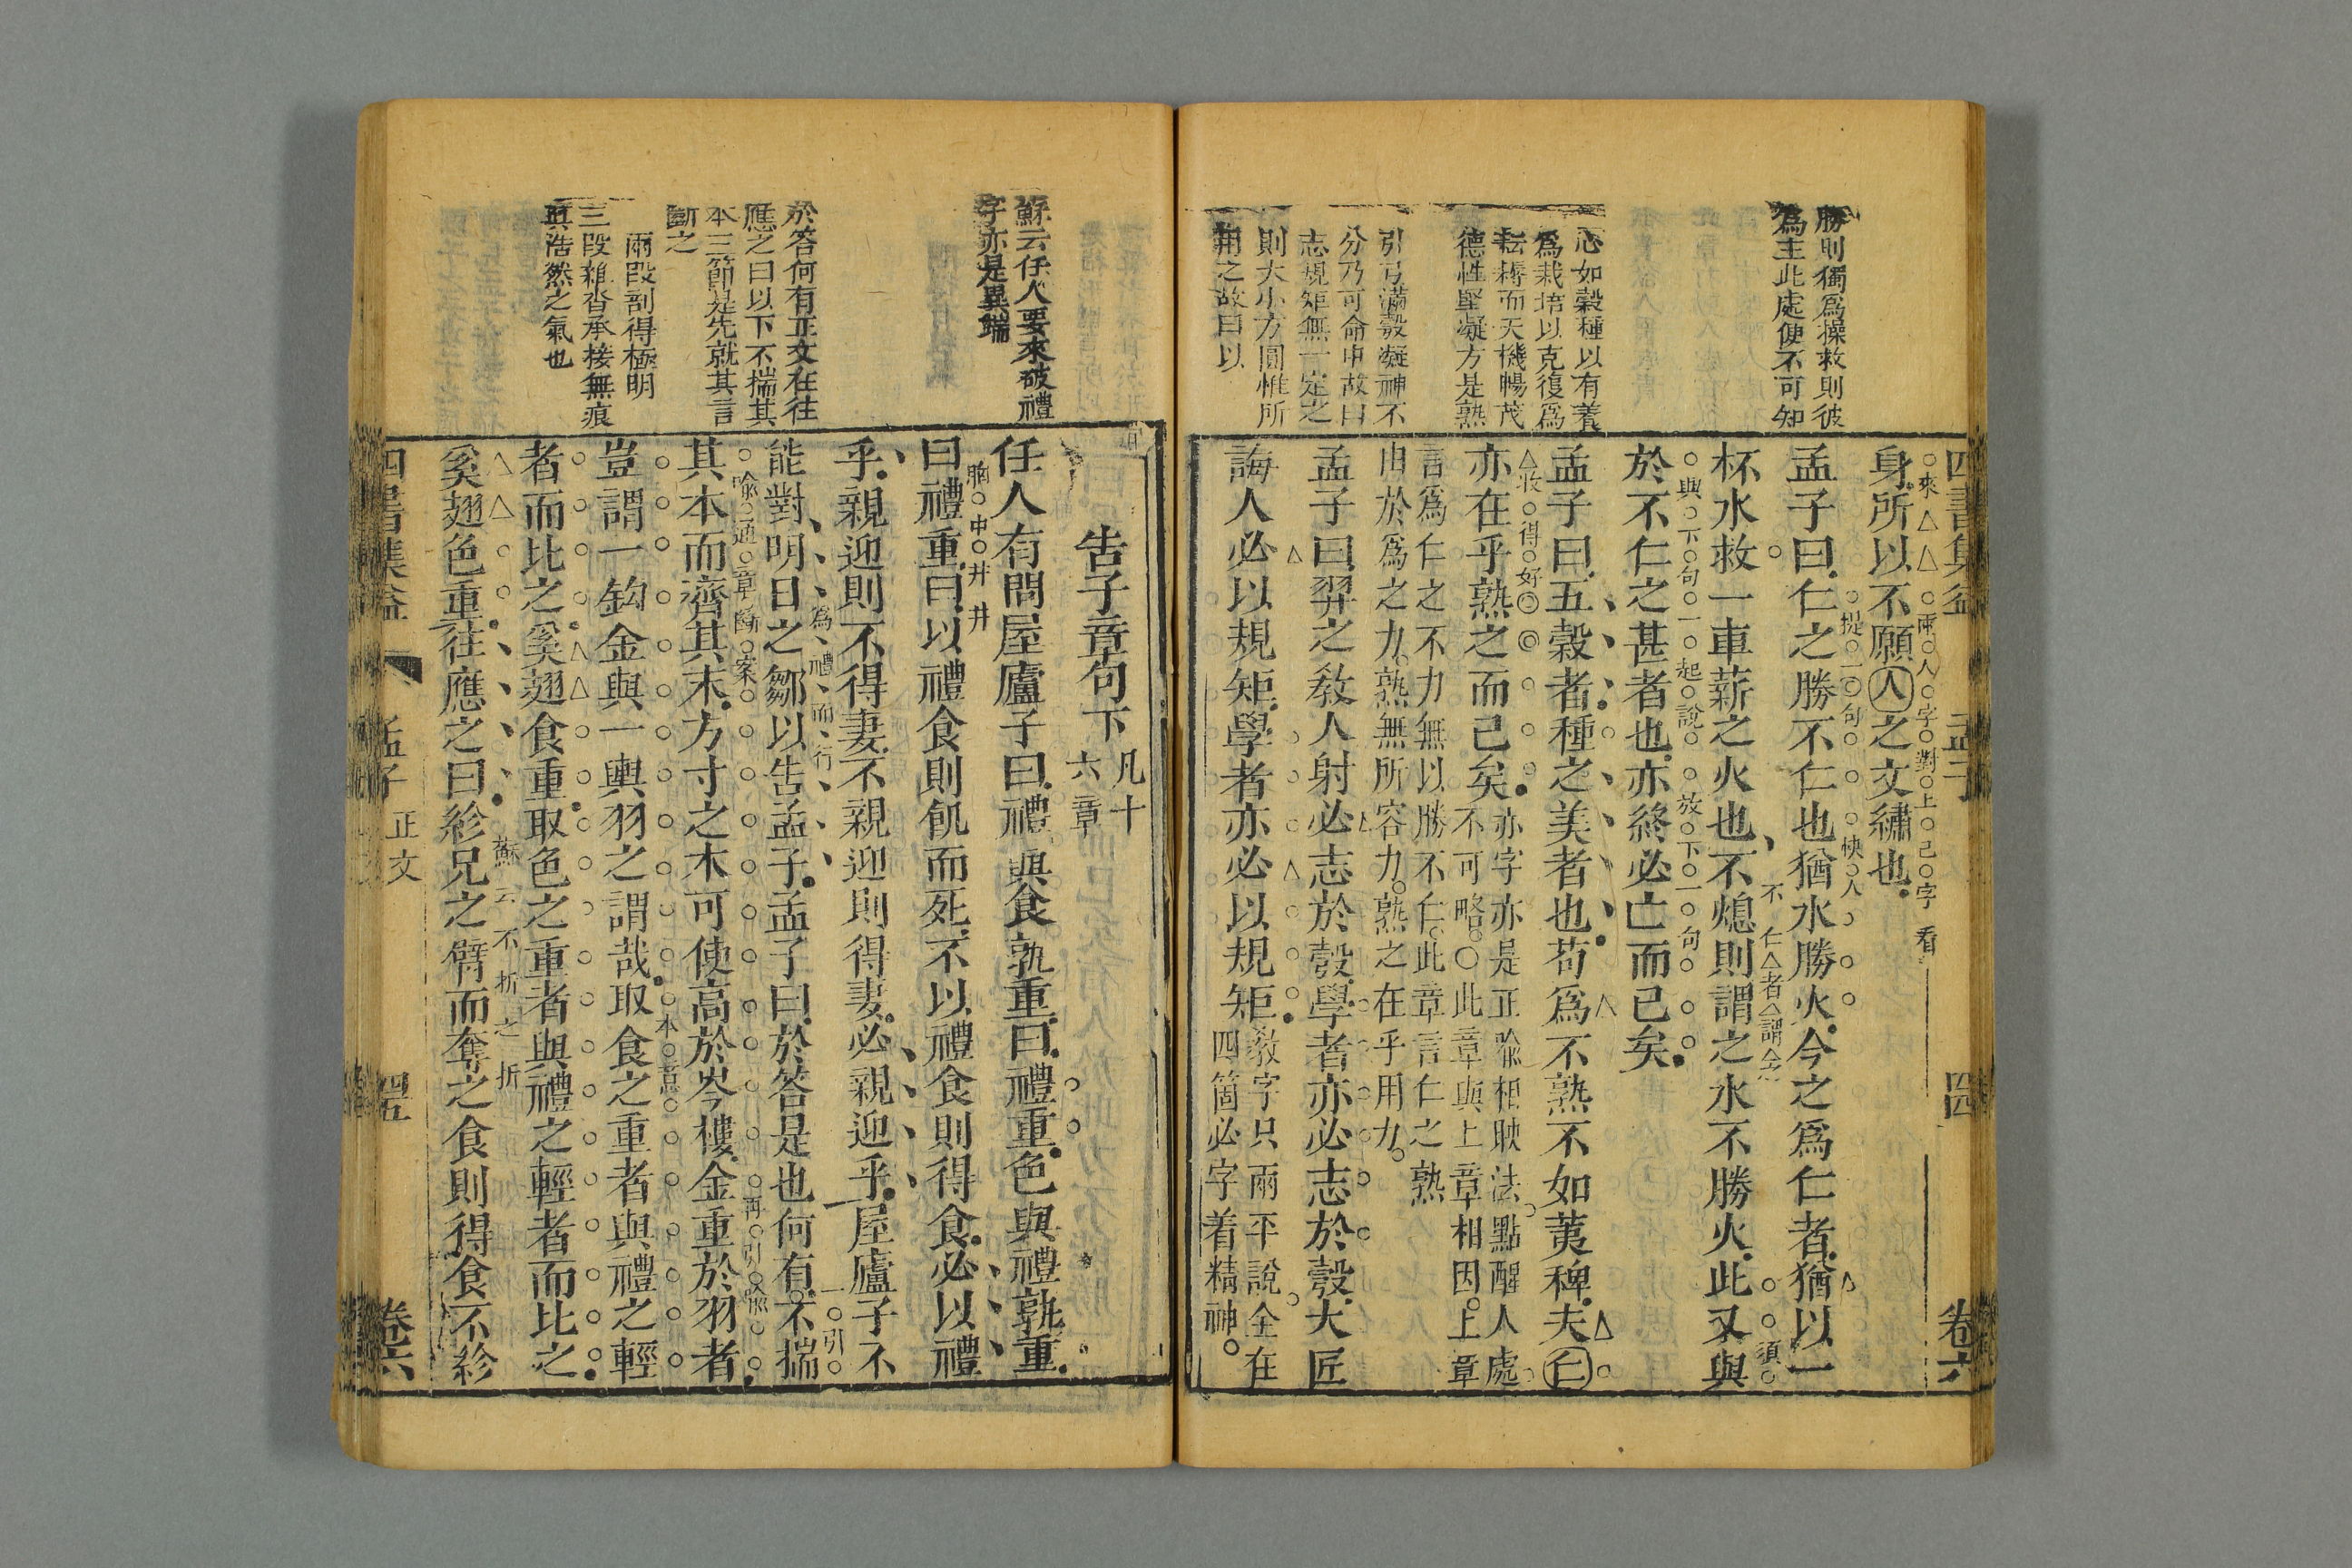 四書集益
孟子
四四
卷六
勝則獨爲操救則彼
爲主此處便不可知
心如穀種以有養
爲栽培以克復爲
耘耨而天機暢茂
德性堅凝方是熟
引弓滿彀凝神不
分乃可命中故曰
志規矩無一定之
則大小方圓惟所
用之故曰以
來
兩人字對上己字看
身所以不願人之文繡也
提一句
快人
孟子曰仁之勝不仁也猶水勝火今之爲仁者猶以一
不仁者謂
須
杯水救一車薪之火也不熄則謂之水不勝火此又與
與下句一起說
放下一句
於不仁之甚者也亦終必亡而已矣
孟子曰五穀者種之美者也苟爲不熟不如荑稗夫仁
收得好
亦在乎熟之而已矣
亦字亦是正喩相映法點醒人處
不可略○此章與上章相因上章
言爲仁之不力無以勝不仁此章言仁之熟
由於爲之力熟無所容力熟之在乎用力
孟子曰羿之敎人射必志於彀學者亦必志於彀大匠
誨人必以規矩學者亦必以規矩
敎字只兩平說全在
四箇必字着精神
蘇云任人要來破禮
字亦是異端
於答何有正文在往
應之曰以下不揣其
本三節是先就其言
斷之
兩段剖得極明
三段雜沓承接無痕
眞浩然之氣也
告子章句下
凡十
六章
任人有問屋廬子曰禮與食孰重曰禮重色與禮孰重
胸中井井
曰禮重曰以禮食則飢而死不以禮食則得食必以禮
乎親迎則不得妻不親迎則得妻必親迎乎屋廬子不
爲禮而行
一引
能對明日之鄒以告孟子孟子曰於答是也何有不揣
喩通章斷案
再引喩
其本而齊其末方寸之木可使高於岑樓金重於羽者
本意
豈謂一鈎金與一輿羽之謂哉取食之重者與禮之輕
者而比之奚翅食重取色之重者與禮之輕者而比之
蘇云不折之折
奚翅色重往應之曰紾兄之臂而奪之食則得食不紾
四書集益
孟子
正文
四五
卷六